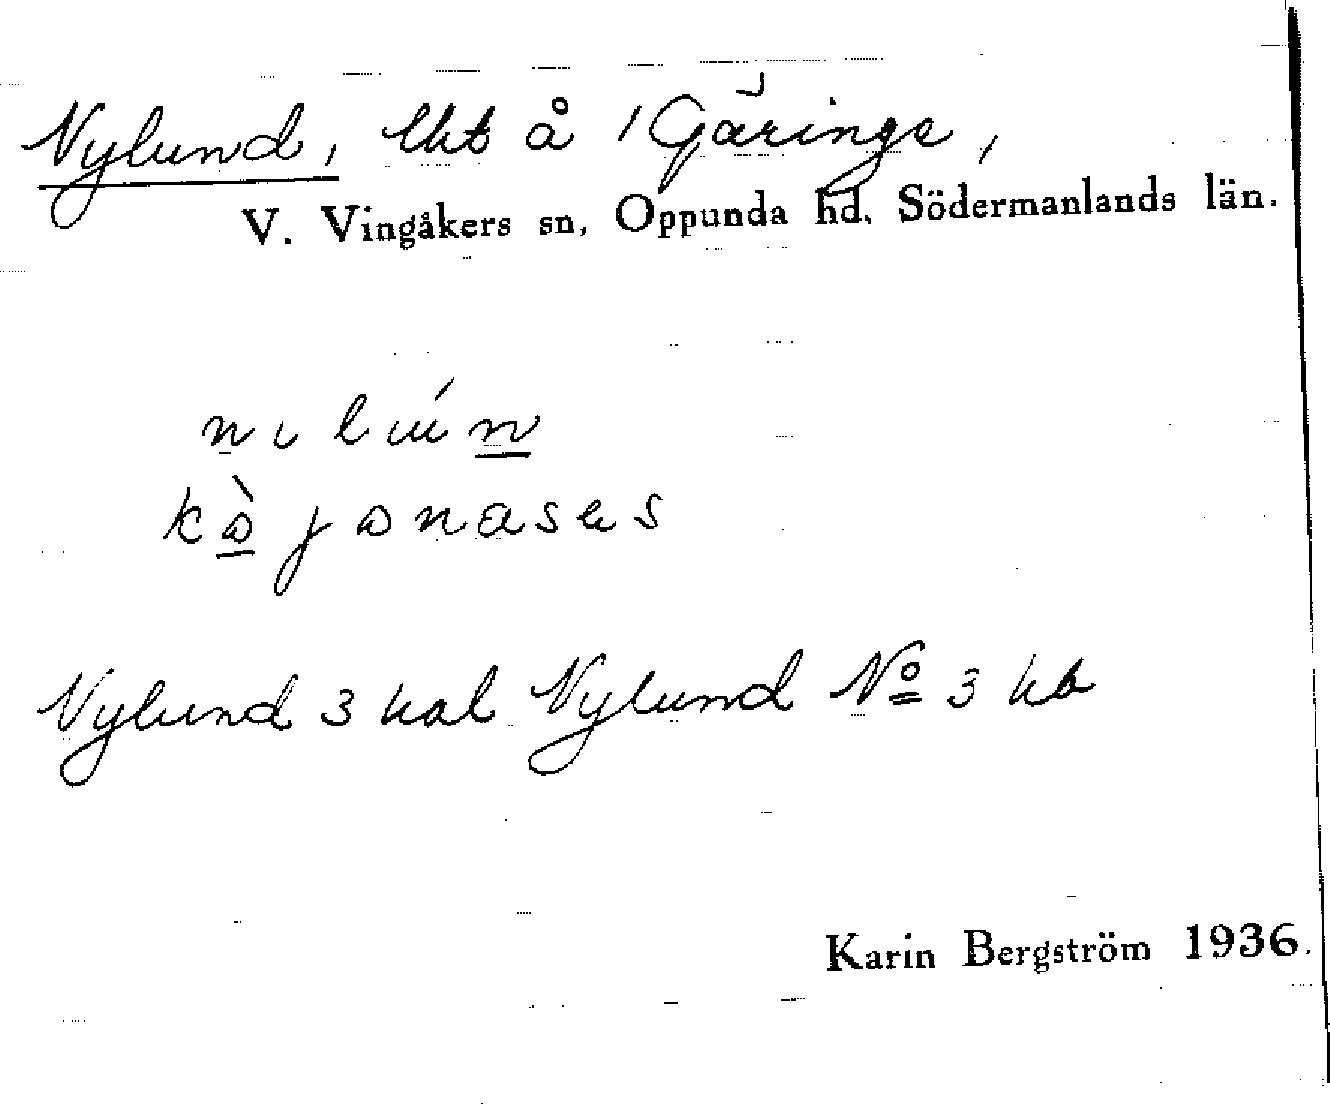 Nylund, lht å /Gäringe,
V. Vingåkers sn, Oppunda hd. Södermanlands län.
Nylund 3 hal Nylund Nº 3 kb
Karin Bergström 1936.